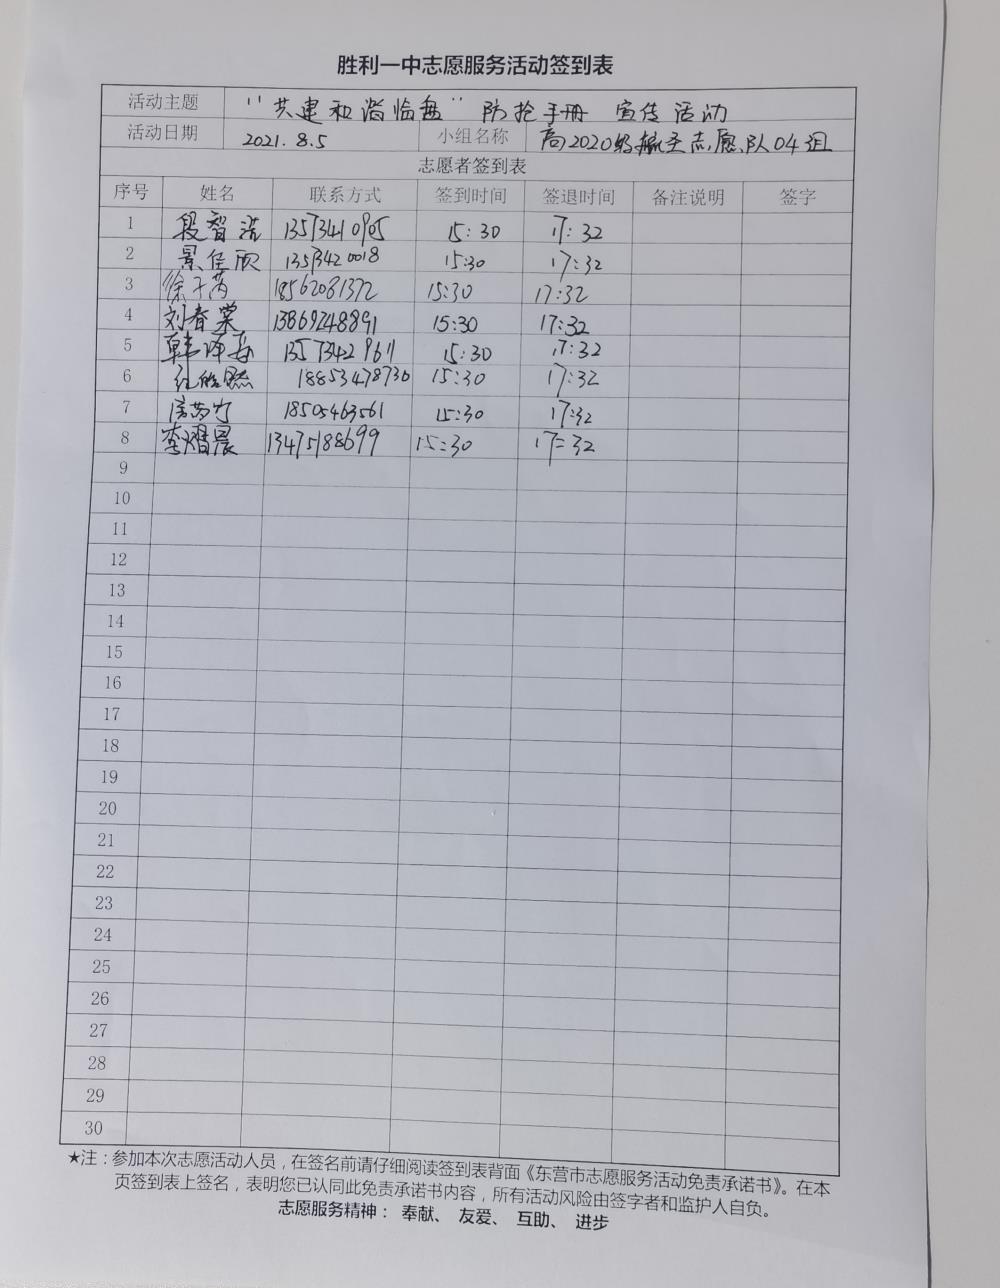 胜利一中志愿服务活动签到表
活动主题 "共建和谐临盘" 防抢手册 宣传活动
活动日期 2021.8.5 小组名称 高2020级 志愿队04组
志愿者签到表
序号 姓名 联系方式 签到时间 签退时间 备注说明 签字
1 段智浩 15:30 17:32
2 景佳欣 13573420018 15:30 17:32
3 徐子芮 18562081372 15:30 17:32
4 刘春棠 13869248891 15:30 17:32
5 韩 13573429611 15:30 17:32
6 18853478730 15:30 17:32
7 18505463561 15:30 17:32
8 李熠晨 13475188699 15:30 17:32
9
10
11
12
13
14
15
16
17
18
19
20
21
22
23
24
25
26
27
28
29
30
★注：参加本次志愿活动人员，在签名前请仔细阅读签到表背面《东营市志愿服务活动免责承诺书》。在本
页签到表上签名，表明您已认同此免责承诺书内容，所有活动风险由签字者和监护人自负。
志愿服务精神： 奉献、 友爱、 互助、 进步